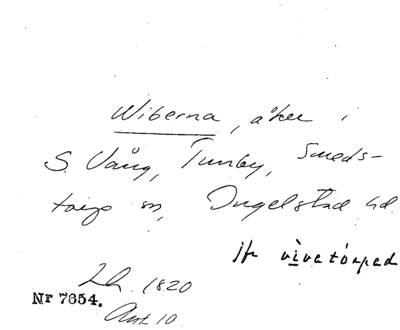 Wiberna, åker i
S. Vång, Tunby, Smeds-
torp sn, Ingelstad hd.
jfr vivetorped
Lh. 1820
Nr 7654.
Akt 10